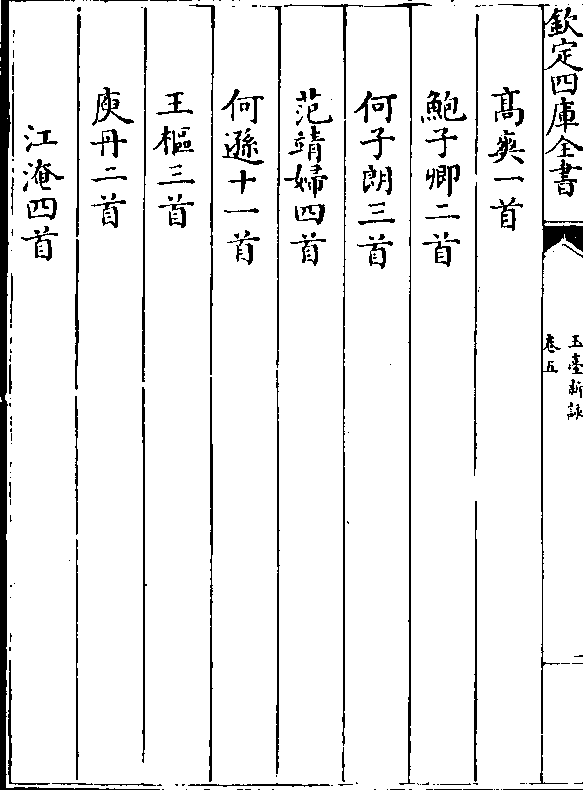 欽定四庫全書
玉臺新詠
卷五
高爽一首
鮑子卿二首
何子朗三首
范靖婦四首
何遜十一首
王樞三首
庾丹二首
江淹四首